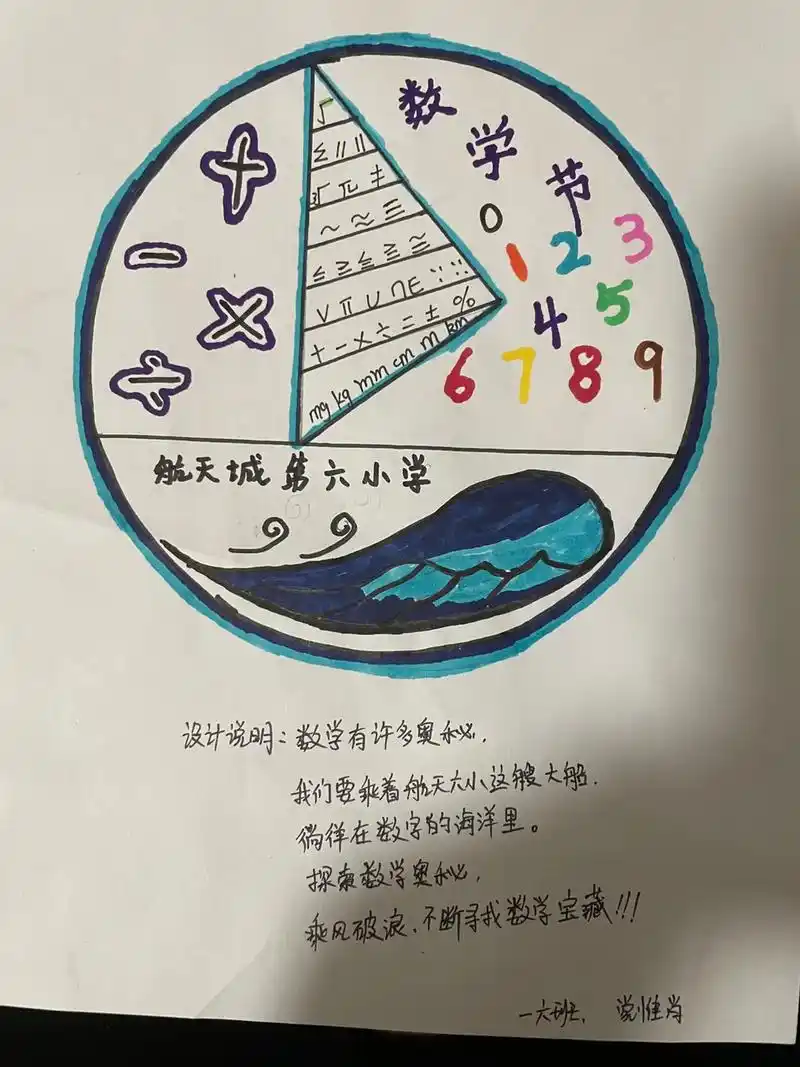 数学节
+
-
×
÷
√
≤ // ||
3√ π ≠
~ ≈ ≡
≤ ≥ ≦ ≧ ≅
∨ π ∪ ∩ ∈ ∵ ∷
+ - × ÷ = ± %
mg kg mm cm m km
0
1 2 3
4 5
6 7 8 9
航天城第六小学
设计说明：数学有许多奥秘,
我们要乘着航天六小这艘大船.
徜徉在数字的海洋里。
探索数学奥秘,
乘风破浪,不断寻找数学宝藏!!!
一六班,